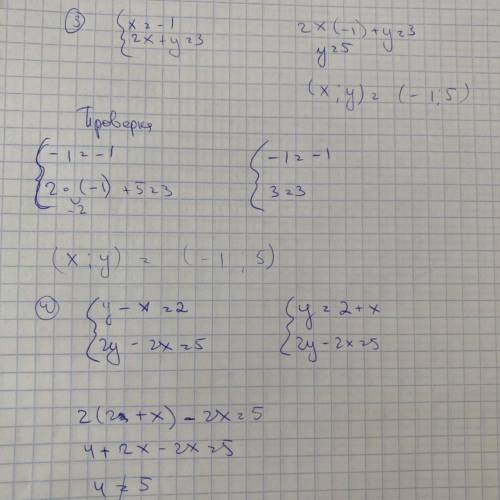 3) { x = -1      2x(-1) + y = 3
{ 2x + y = 3      y = 5
(x ; y) = (-1 ; 5)
Проверка
{ -1 = -1      { -1 = -1
{ 2 · (-1) + 5 = 3      { 3 = 3
-2
(x ; y) = (-1 ; 5)
4) { y - x = 2      { y = 2 + x
{ 2y - 2x = 5      { 2y - 2x = 5
2(2 + x) - 2x = 5
4 + 2x - 2x = 5
4 ≠ 5